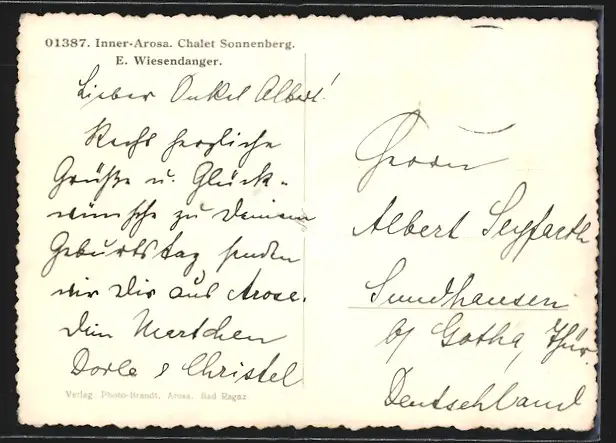 01387. Inner-Arosa. Chalet Sonnenberg.
E. Wiesendanger.
Lieber Onkel Albert!
Recht herzliche
Grüße u. Glück-
wünsche zu Deinem
Geburtstag senden
wir Dir aus Arosa.
Dein
Dorle & Christel
Verlag Photo-Brandt, Arosa, Bad Ragaz
Herrn
Albert Seyfarth
Sundhausen
b/ Gotha, Thür.
Deutschland